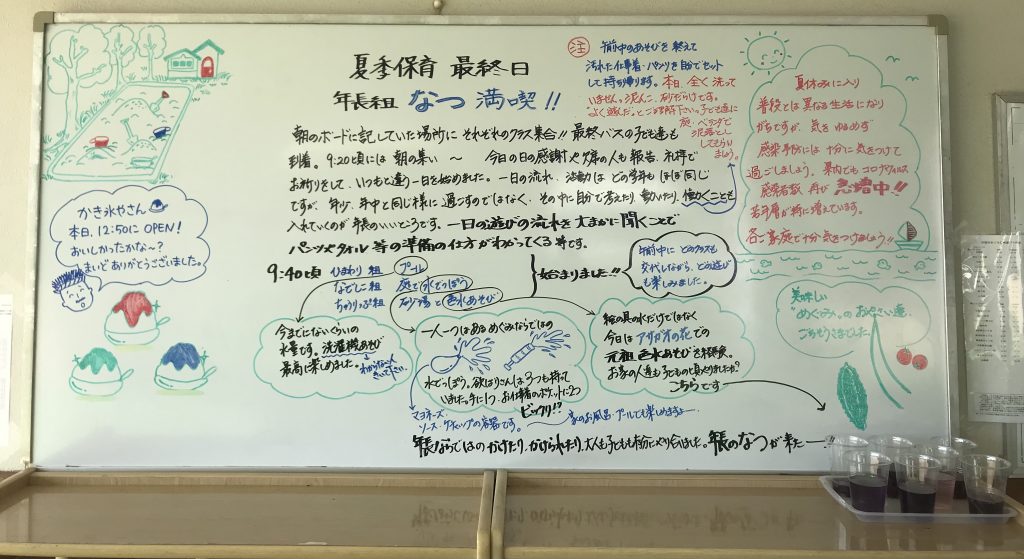 夏季保育 最終日
年長組 なつ 満喫!!
注 午前中のあそびを終えて
汚れた仕事着・パンツを自分でセット
して持ち帰ります。本日、全く洗って
いません。泥んこ、砂だらけです。
よく遊んだ。とご理解下さい。子ども達に
庭・ベランダで
泥落とし
してもらい
ましょう。
朝のボードに記していた場所に それぞれのクラス集合!! 最終バスの子ども達も
到着。9:20頃には 朝の集い 〜 今日の日の感謝や席の人も報告、礼拝で
お祈りをして、いつもと違う一日を始めました。一日の流れ、活動は どの学年も ほぼ同じ
ですが、年少、年中と同じ様に過ごすのではなく、その中に自分で考えたり、動いたり、働くことも
入れていくのが年長のいいところです。一日の遊びの流れを大まかに聞くことで
パンツやタオル 等の準備の仕方がわかってくる筈です。
9:40頃 ひまわり組 プール
なでしこ組 庭で水でっぽう
ちゅうりっぷ組 砂場と色水あそび
始まりました!!
午前中に どのクラスも
交代しながら、どの遊び
も楽しみました。
今までにないくらいの
水量です。洗濯機あそび
最高に楽しめました。
わからない人
きいて下さい。
一人一つはある めぐみならではの
水でっぽう。欲ばりさんは3つも持って
いました。手に1つ、お仕事着のポケットに2つ
ビックリ!?
マヨネーズ
ソース・ケチャップの容器です。
家のお風呂・プールでも楽しめますよー
絵の具の水だけではなく
今日は アサガオの花での
元祖 色水あそびを経験。
お家の人達も子どもの頃やりましたか?
こちらです
年長ならではの かけたり、かけられたり、大人も子どもも存分にやり合いました。年長のなつが来たー!!
かき氷やさん
本日、12:50に OPEN!
おいしかったかな〜?
まいどありがとうございました。
夏休みに入り
普段とは異なる生活になり
がちですが、気をゆるめず
感染予防には十分に気をつけて
過ごしましょう。県内でもコロナウイルス
感染者数 再び急増中!!
若年層が特に増えています。
各ご家庭で十分気をつけましょう!!
美味しい
"めぐみ"のお野さい達
ごちそうさまでした